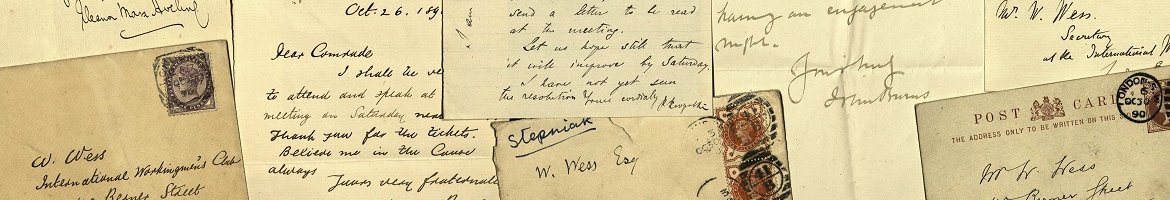 Eleanor Marx Aveling
W. Wess
International Workingmen's Club
Berner Street
Oct. 26. 189
Dear Comrade
I shall be ve
to attend and speak at
meeting on Saturday nex
Thank you for the tickets.
Believe me in the Cause
always
Yours very fraternall
I am
send a letter to be read
at the meeting.
Let us hope still that
it will improve by Saturday.
I have not yet seen
the resolution
Yours cordially
P. Kropotkin
Stepniak
W. Wess Esq
having an engagement
night.
Yours truly
John Burns
Mr. W. Wess.
Secretary
of the International W
POST CAR
THE ADDRESS ONLY TO BE WRITTEN ON THIS
LONDON
OC 30
90
Mr W. Wess
Berner Street